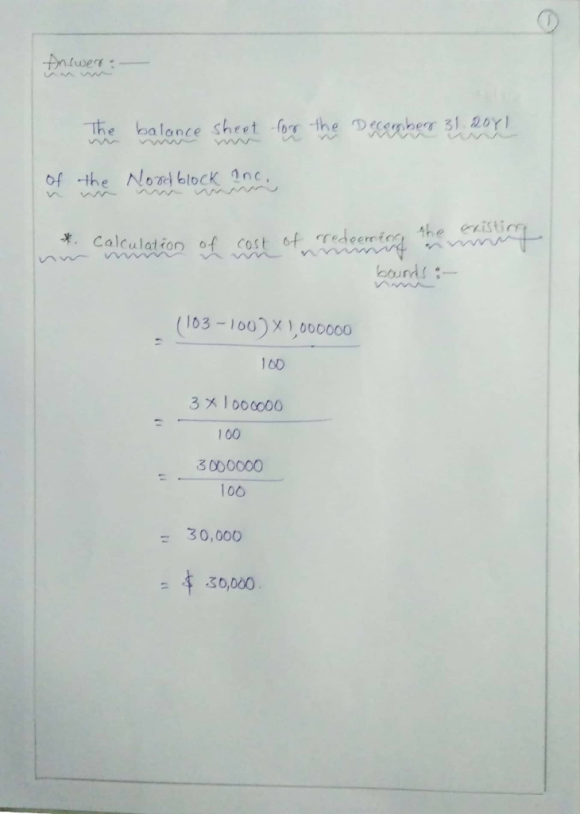 1
Answer :—
The balance sheet for the December 31. 20Y1
of the Nordblock Inc.
*. Calculation of cost of redeeming the existing
bounds :—
= (103 - 100) × 1,000000
100
= 3 × 1000000
100
= 3000000
100
= 30,000
= $ 30,000.